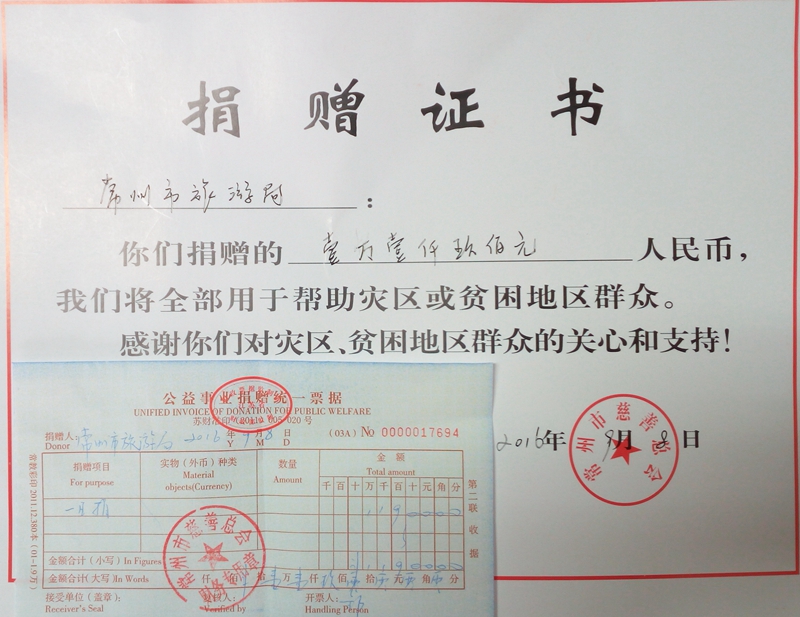 捐赠证书
常州市旅游局：
你们捐赠的 壹万壹仟玖佰元 人民币，
我们将全部用于帮助灾区或贫困地区群众。
感谢你们对灾区、贫困地区群众的关心和支持！
2016年9月8日
常州市慈善总会
公益事业捐赠统一票据
UNIFIED INVOICE OF DONATION FOR PUBLIC WELFARE
苏财 印(2011) 005 020 号
捐赠人: 常州市旅游局 2016年9月8日 (03A) No 0000017694
Donor Y M D
捐赠项目 实物（外币）种类 数量 金额
For purpose Material objects(Currency) Amount Total amount
千百十万千百十元角分
一日捐 1190000
金额合计（小写）In Figures 1190000
金额合计（大写）In Words 仟 佰 拾壹万壹仟玖佰零拾零元零角零分
接受单位（盖章）： 复核人： 开票人：
Receiver's Seal Verified by Handling Person
第二联 收据
常州市慈善总会
财务专用章